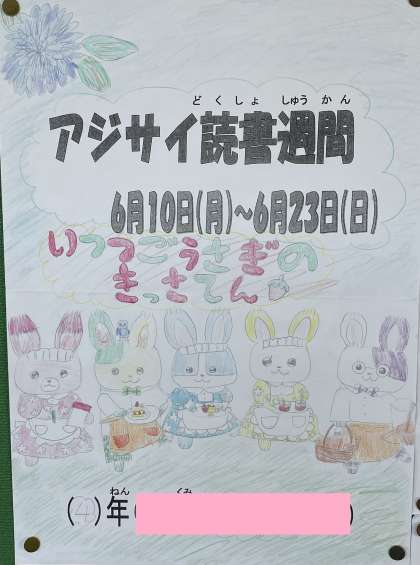 どくしょ しゅうかん
アジサイ読書週間
6月10日(月)~6月23日(日)
いつつごうさぎの
きっさてん
ねん くみ
(4)年( )